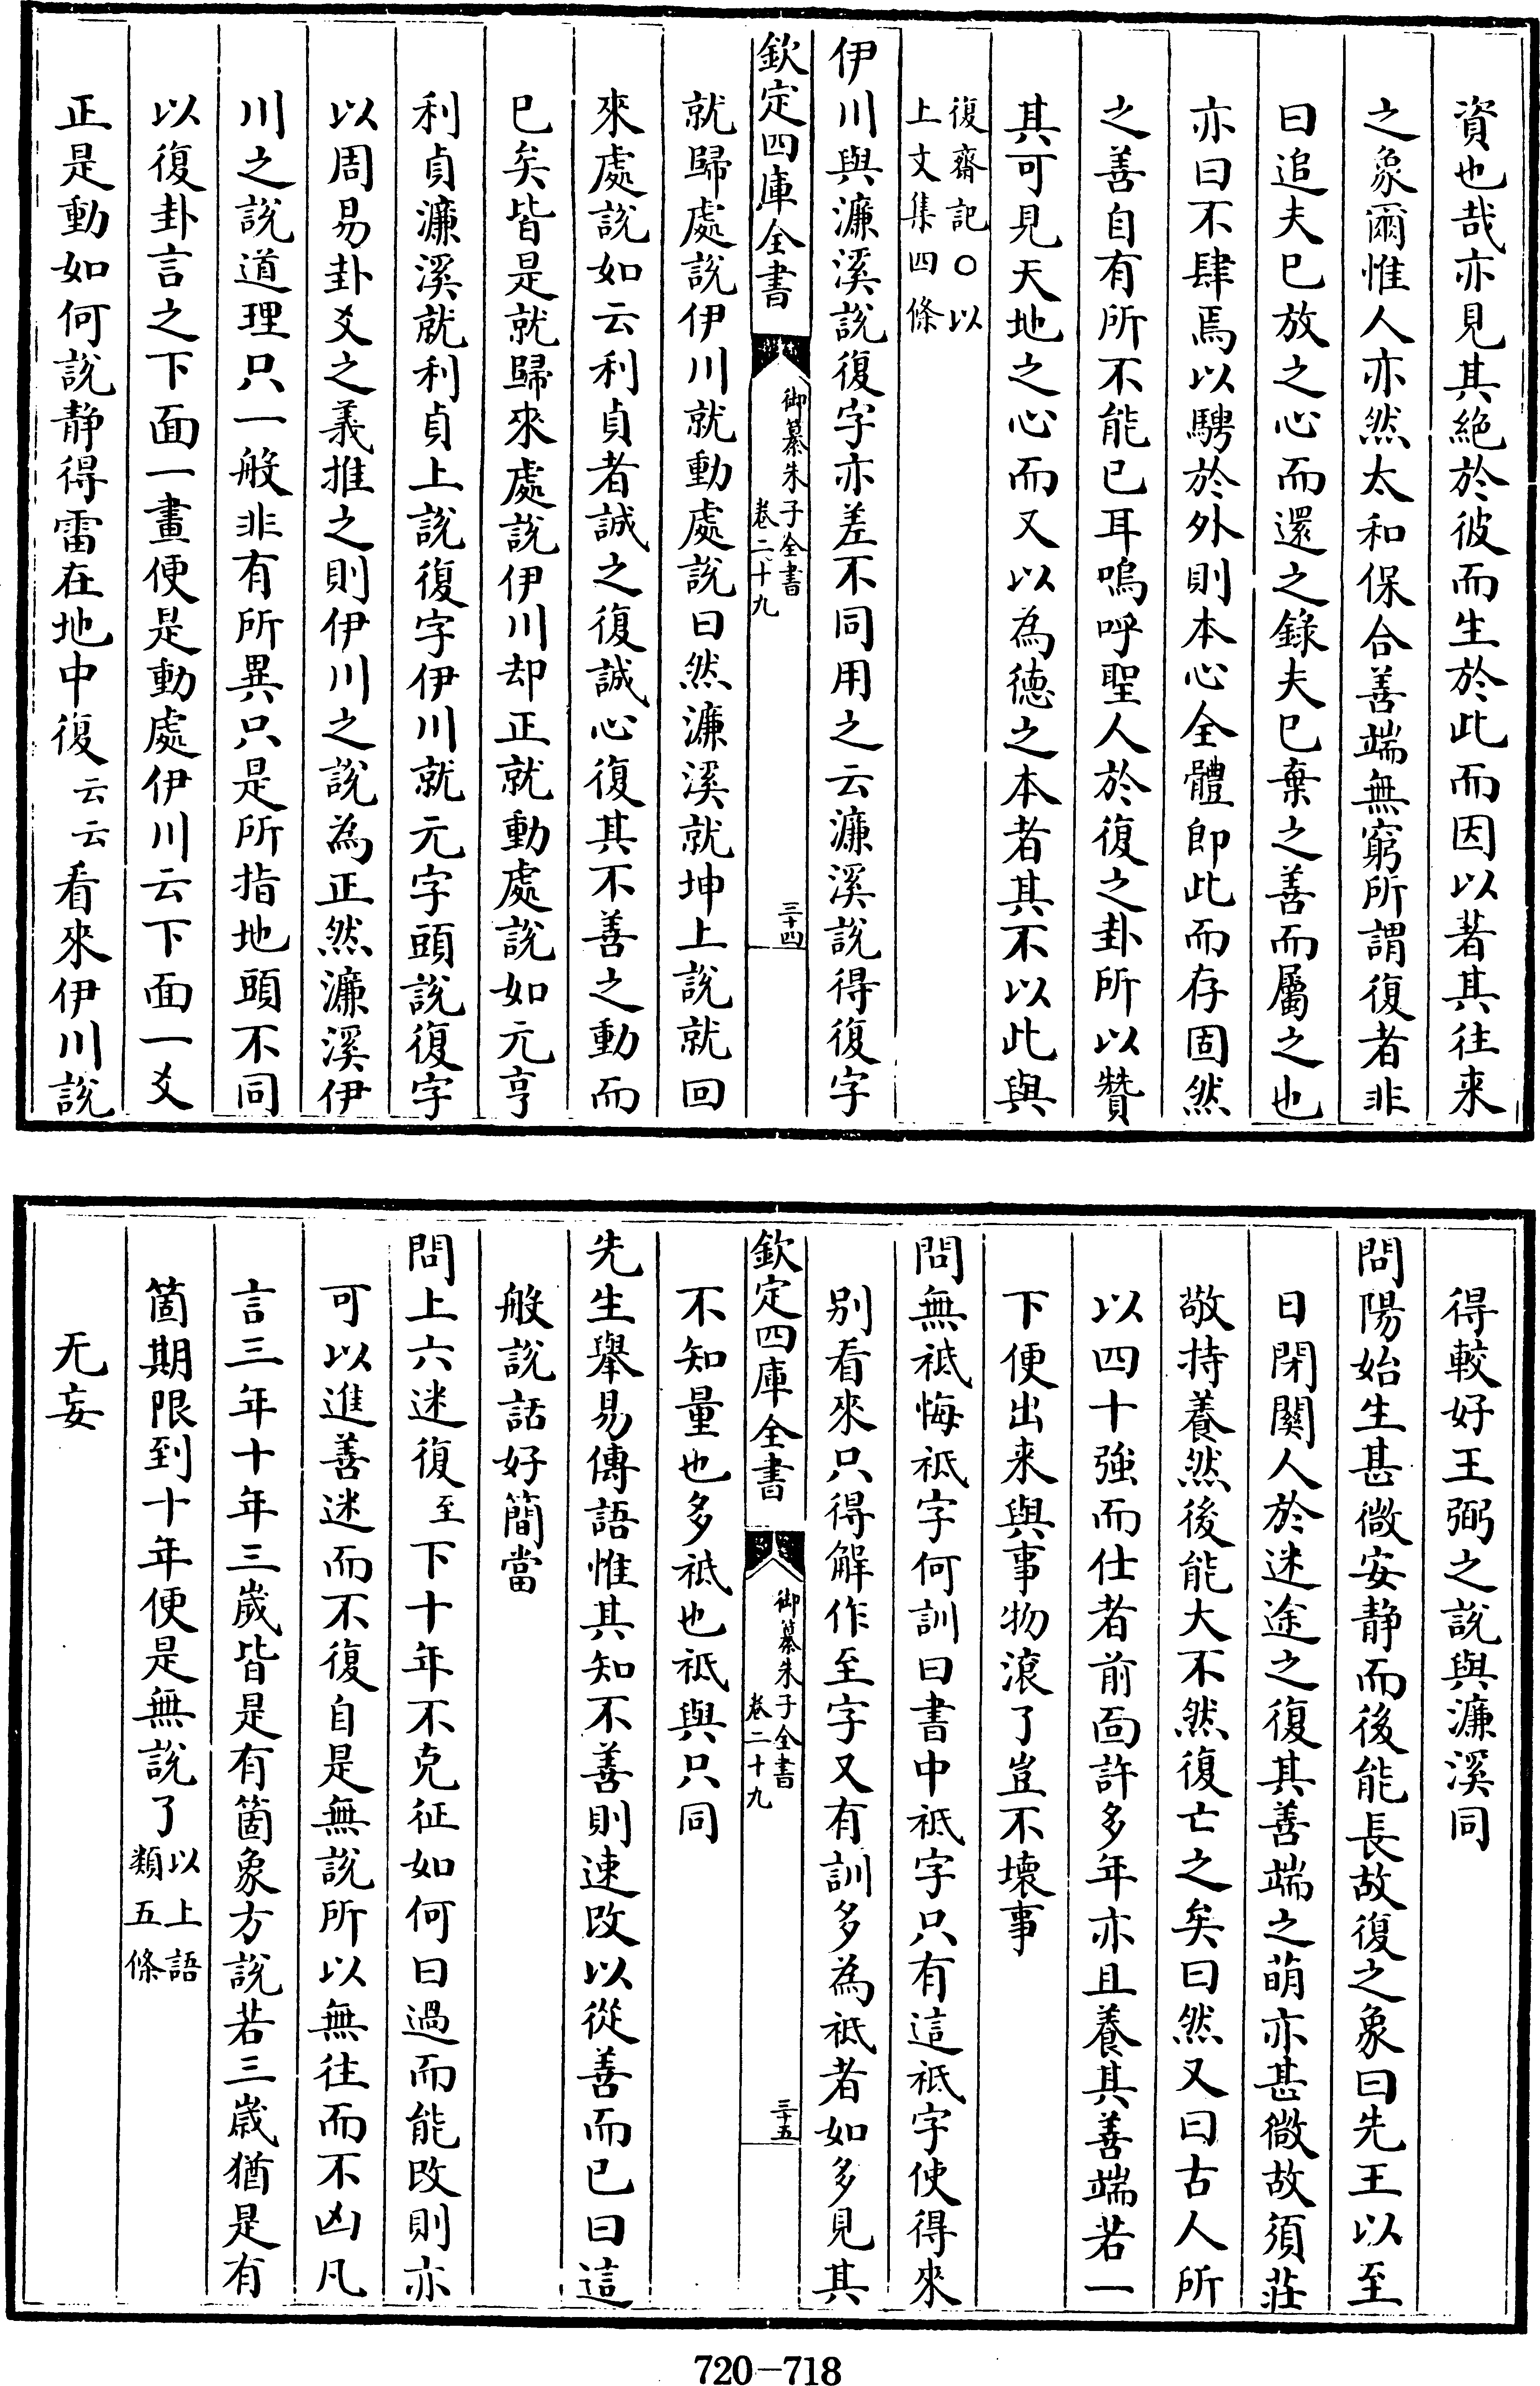 資也哉亦見其絶於彼而生於此而因以著其往来
之象爾惟人亦然太和保合善端無窮所謂復者非
曰追夫已放之心而還之錄夫已棄之善而屬之也
亦曰不肆焉以騁於外則本心全體即此而存固然
之善自有所不能已耳嗚呼聖人於復之卦所以贊
其可見天地之心而又以為德之本者其不以此與
復齋記○以
上文集四條
伊川與濂溪說復字亦差不同用之云濂溪說得復字
欽定四庫全書
御纂朱子全書
卷二十九
三十四
就歸處說伊川就動處說曰然濂溪就坤上說就回
來處說如云利貞者誠之復誠心復其不善之動而
已矣皆是就歸來處說伊川却正就動處說如元亨
利貞濂溪就利貞上說復字伊川就元字頭說復字
以周易卦爻之義推之則伊川之說為正然濂溪伊
川之說道理只一般非有所異只是所指地頭不同
以復卦言之下面一畫便是動處伊川云下面一爻
正是動如何說静得雷在地中復云云看來伊川說
得較好王弼之說與濂溪同
問陽始生甚微安静而後能長故復之象曰先王以至
日閉關人於迷途之復其善端之萌亦甚微故須莊
敬持養然後能大不然復亡之矣曰然又曰古人所
以四十強而仕者前面許多年亦且養其善端若一
下便出来與事物滾了豈不壞事
問無祗悔祗字何訓曰書中祗字只有這祗字使得來
别看來只得解作至字又有訓多為祗者如多見其
欽定四庫全書
御纂朱子全書
卷二十九
三十五
不知量也多祗也祗與只同
先生舉易傳語惟其知不善則速改以從善而已曰這
般說話好簡當
問上六迷復至下十年不克征如何曰過而能改則亦
可以進善迷而不復自是無說所以無往而不凶凡
言三年十年三歲皆是有箇象方說若三歲猶是有
箇期限到十年便是無說了以上語
類五條
无妄
720-718